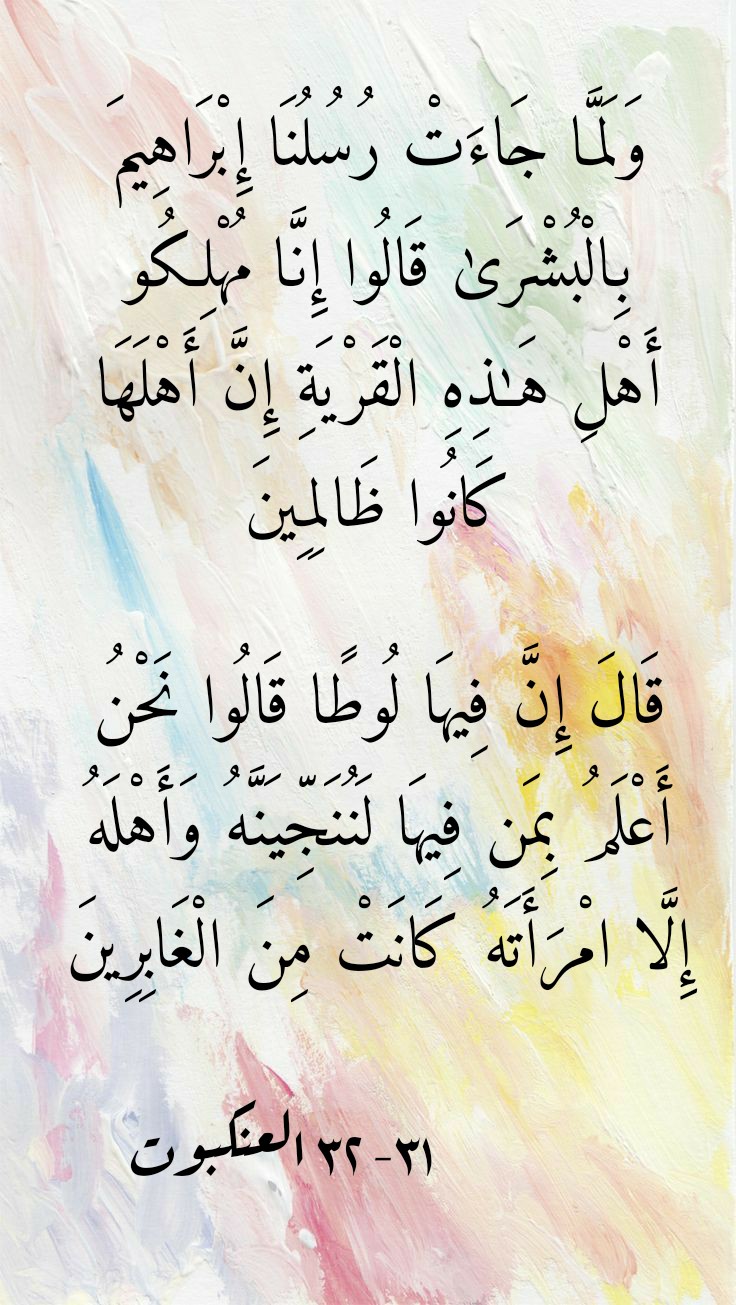 وَلَمَّا جَاءَتْ رُسُلُنَا إِبْرَاهِيمَ
بِالْبُشْرَىٰ قَالُوا إِنَّا مُهْلِكُو
أَهْلِ هَـٰذِهِ الْقَرْيَةِ إِنَّ أَهْلَهَا
كَانُوا ظَالِمِينَ
قَالَ إِنَّ فِيهَا لُوطًا قَالُوا نَحْنُ
أَعْلَمُ بِمَن فِيهَا لَنُنَجِّيَنَّهُ وَأَهْلَهُ
إِلَّا امْرَأَتَهُ كَانَتْ مِنَ الْغَابِرِينَ
٣١- ٣٢ العنكبوت